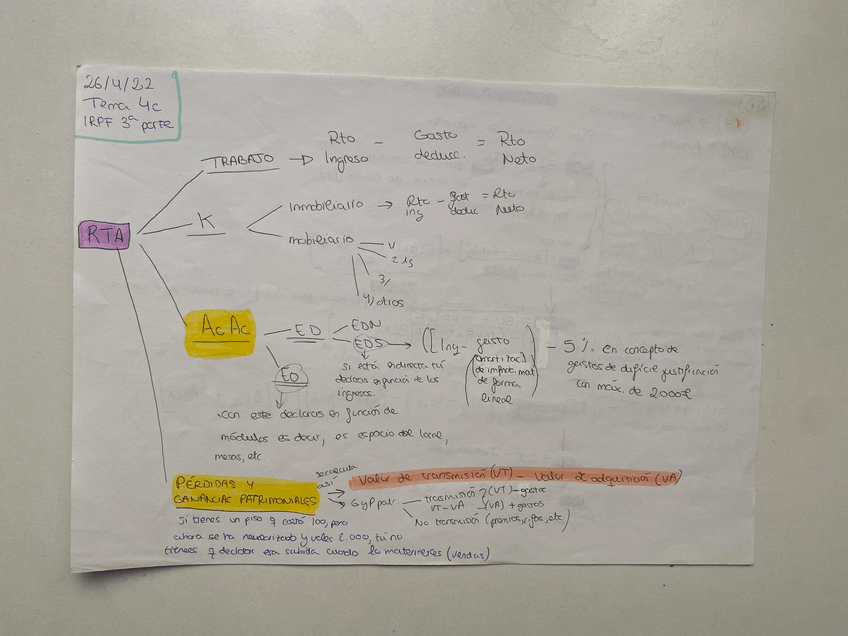 26/4/22
Tema 4c
IRPF 3ª parte
RTA
TRABAJO → Rto Ingreso - Gasto deducc. = Rto Neto
K
Inmobiliario → Rto Ing - gast deduc = Rto Neto
mobiliario
1/
2/
3/
4/ otros
AcAc
ED
EDN
EDS → ([Ing - gasto
(amortizac)
de inmov. mat
de forma
lineal
- 5% en concepto de
gastos de difícil justificación
con máx. de 2000€
si está en directa tú
declaras en función de los
ingresos.
EO
·Con este declaras en función de
módulos es decir, es espacio del local,
mesas, etc.
PÉRDIDAS Y
GANANCIAS PATRIMONIALES
se calcula
así
Valor de transmisión (VT) - Valor de adquisición (VA)
GyP patr.
trasmisión (VT) - gastos
VT - VA (VA) + gastos
No transmisión (premios, rifas, etc)
Si tienes un piso q costó 100, pero
ahora se ha revalorizado y vale 2.000, tú no
tienes q declarar esa subida cuando lo materialices (vendas)